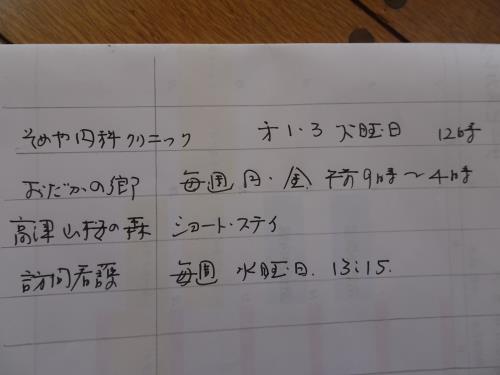 そめや内科クリニック 才1・3 火曜日 12時
おだかの郷 毎週 月・金 午前9時〜4時
高津山杉の森 ショート・ステイ
訪問看護 毎週 水曜日. 13:15.